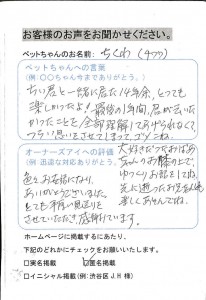 お客様のお声をお聞かせください。
ペットちゃんのお名前:ちくわ(4つつ)
ペットちゃんへの言葉
(例:○○ちゃん今までありがとう。)
ちい君と一緒に居た14年余、とっても
楽しかったよ!最後の1年間、君が云いた
かったことを全部理解してあげられなくて
つらい思いをさせてしまってゴメンね。
大好きだったおばあ
ちゃんのお膝の上で
ゆっくりお話をしてね
先に逝ったお兄さん達
楽しくあそんでね。
オーナーズアイへの評価
(例 迅速な対応ありがとう。)
色々お世話になり、
ありがとうございました。
とても手厚い見送りを
させていただき感謝しています。
ホームページに掲載するにあたり、
下記のどれかにチェックをお願いいたします。
□実名掲載 ☑匿名掲載
□イニシャル掲載(例:渋谷区J.H様)